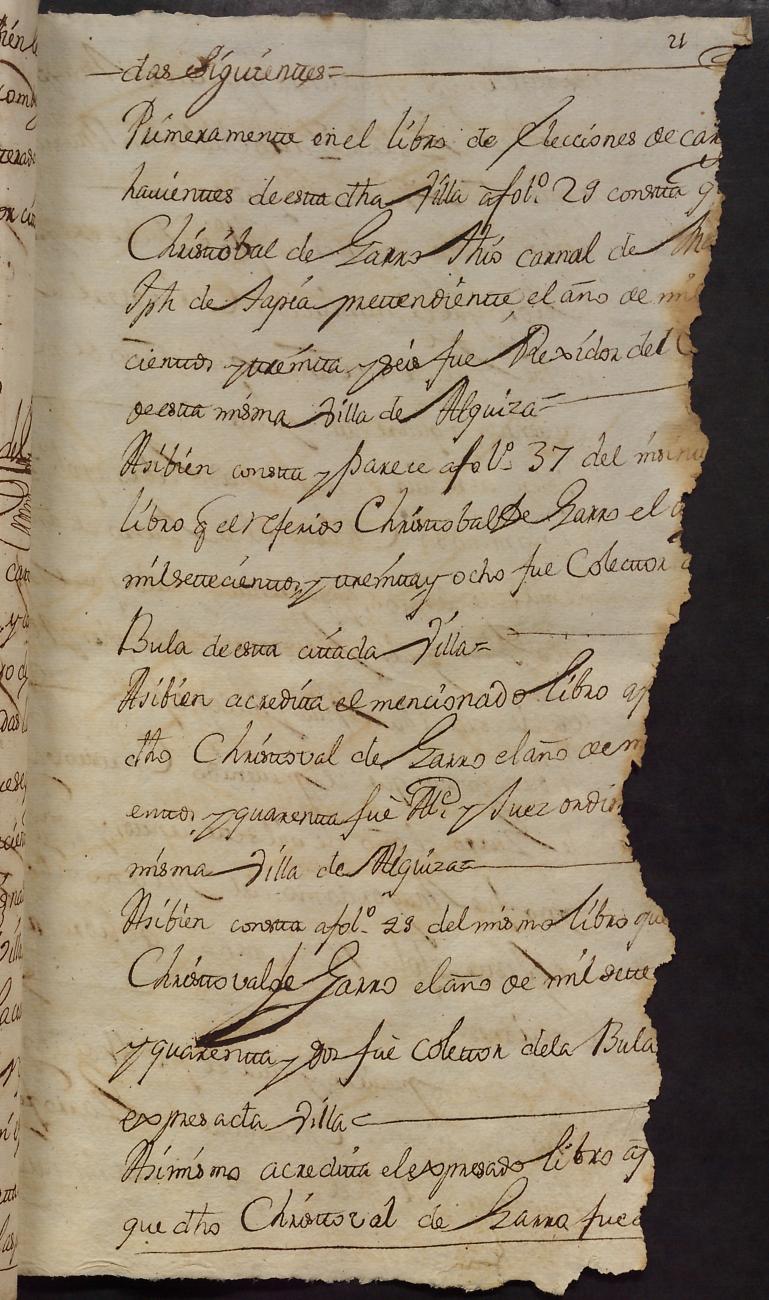 21
das Siguientes=
Primeramente en el libro de Elecciones de car
havientes de esta dha Villa afol.º 29 consta q
Christobal de Garro thio carnal de
Jph de Sapia pretendiente, el año de mil
cientos y treinta y seis fue Rexidor del C
de esta misma Villa de Alquiza=
Asibien consta y parece afol.º 37 del mismo
libro q el referido Christobal de Garro el a
mil setecientos, y treinta y ocho fue Colector
Bula de esta citada Villa=
Asibien acredita el mencionado libro
dho Christoval de Garro el año de m
entos, y quarenta fue Al.e y Juez ordin
misma Villa de Alquiza=
Asibien consta afol.º 43 del mismo libro que
Christoval de Garro el año de mil sete
y quarenta y dos fue Colector de la Bula
expresada Villa=
Asimismo acredita el expresado libro af
que dho Christoval de Garro fue